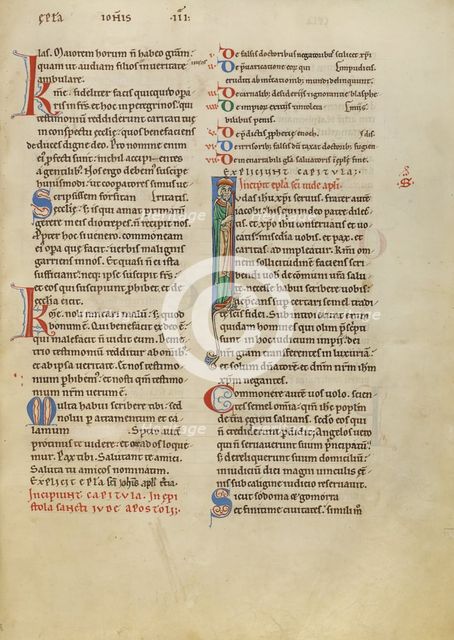 EPLA IOHIS III
las. Maiorem horum n̄ habeo gr̄am.
quam ut audiam filios in ueritate
ambulare.
Kme. fideliter facis quicq̇d opa
ris in frēs et hoc in peregrinos. qui
testimonium reddiderunt caritati tue
in conspectu eccl̄ie. quos benefaciens
deduces digne deo. Pro nomine enim
ei p̄fecti sunt: nichil accipi entes
a gentilib;. Nos ergo debem̄ suscipe
huiusmodi. ut cooperatores simus ue
Scripsissem forsitan ritatis.
eccl̄ie. s; his qui amat primatū
gerere in eis diotrepes. n̄ recipit nos.
Propter hoc si uenero. commoneam
ei opa que facit: uerbis malignis
garriens in nos. Et quasi n̄ ei ista
sufficiant: nec ipse suscipit fr̄s:
et eos qui suscipiunt. phibet. et de
ecclesia eicit.
Kme. noli imitari malū: s; quod
bonum ē. Qui benefacit ex deo ē:
qui malefacit n̄ uidit eum. Deme
trio testimoniū redditur ab omnib;.
et ab ipsa ueritate. Et nos testimo
nium phibem̄. et nosti qm̄ testimo
nium nr̄m uerum ē.
Multa habui scribere tibi. sed
nolui p atramentum et ca
lamum Spero aut̄
protinus te uidere. et os ad os loque
mur. Pax tibi. Salutant te amici.
Saluta tu amicos nominatim.
EXPLICIT EPLA SC̄I IOHIS APLI TCIA.
INCIPIUNT CAPITULA. IN EPI
STOLA SANCTI IUDE APOSTOLI.
De falsis doctoribus negatoribus scilicet xp̄i
De p̄uaricatione eor̄ qui Impudicis.
eruditi ab incitationib; mundi delinquunt.
De carnalib; desiderijs
De impior̄
bibilibus penis.
De p̄dictis p̄phecie enoch.
De irrisorib; falsis
De inenarrabili gl̄a saluatoris
EXPLICIUNT CAPITULA.
Incipit epl̄a sc̄i iude apl̄i.
Iudas ihū xp̄i seruus. frater autē
iacobi. his qui in deo patre dilec
tis. et xp̄o ihū conseruatis et uo
catis. misc̄dia uobis et pax. et
caritas adimpleatur. Km̄i. om
nem sollicitudinē faciens seri
bendi uob de cōmuni ur̄a salu
te. necesse habui scribere uobis:
dep̄cans sup certari semel tradi
te sc̄is fidei. Sub introierunt enim
quidam homines qui olim p̄scrip
ti sunt in hoc iudicium impij. dei
nr̄i gr̄am transferentes in luxuriā.
et solum dn̄atorē. et dn̄m nr̄m ihm̄
xp̄m negantes.
Commonere aut̄ uos uolo. scien
tes semel omnia. qm̄ ihc populm̄
de tr̄a egypti saluans. sedo eos qui
n̄ crediderunt pdidit; Angelos uero
qui n̄ seruauerunt suum principatū
s; dereliquerunt suum domiciliū:
in iudicium diei magni uinculis et̄nis
sub caligine iudicio reseruauit.
Sicut sodoma et gomorra
et finitime ciuitates. simili m̄